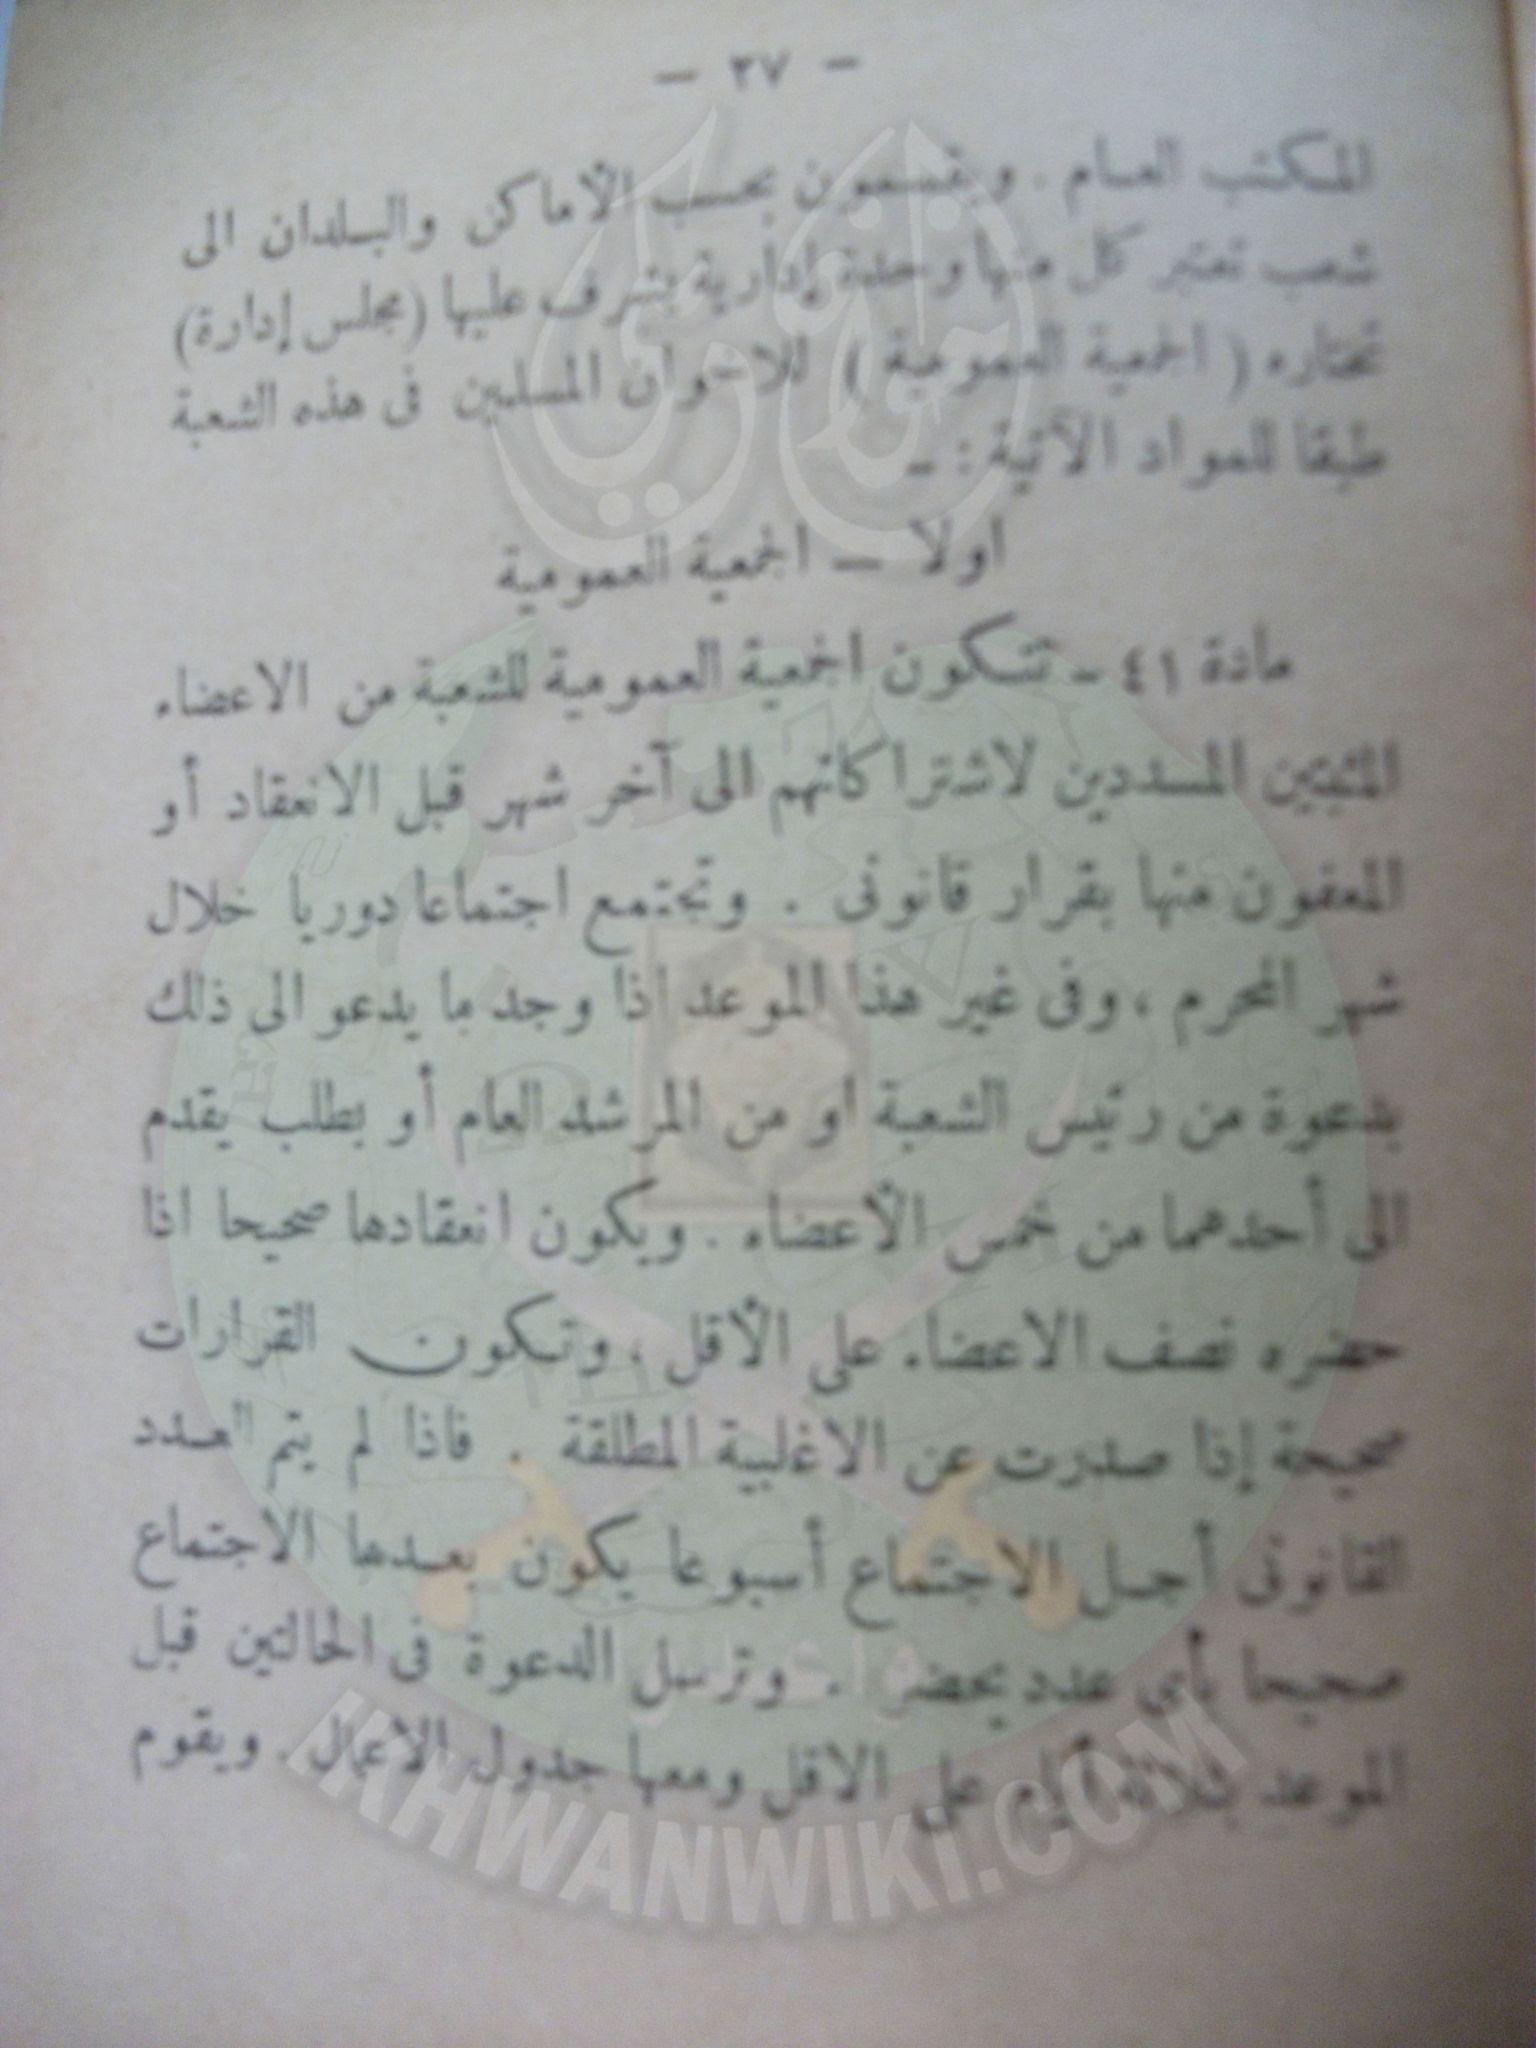 — ٣٧ —
المكتب العام . ويقسمون بحسب الأماكن والبلدان الى
شعب تعتبر كل منها وحدة إدارية يشرف عليها (مجلس إدارة)
تختاره ( الجمعية العمومية ) للاخوان المسلمين فى هذه الشعبة
طبقا للمواد الآتية : -
اولا — الجمعية العمومية
مادة ٤١ - تتكون الجمعية العمومية للشعبة من الاعضاء
المثبتين المسددين لاشتراكاتهم الى آخر شهر قبل الانعقاد أو
المعفون منها بقرار قانونى . وتجتمع اجتماعا دوريا خلال
شهر المحرم ، وفى غير هذا الموعد اذا وجد ما يدعو الى ذلك
بدعوة من رئيس الشعبة او من المرشد العام أو بطلب يقدم
الى أحدهما من خمس الأعضاء . ويكون انعقادها صحيحا اذا
حضره نصف الاعضاء على الأقل ، وتكون القرارات
صحيحة إذا صدرت عن الاغلبية المطلقة . فاذا لم يتم العدد
القانونى أجل الاجتماع أسبوعا يكون بعدها الاجتماع
صحيحا بأى عدد يحضر . وترسل الدعوة فى الحالتين قبل
الموعد بثلاثة أيام على الاقل ومعها جدول الاعمال . ويقوم
إخوان ويكي
وأعدوا
IKHWANWIKI.COM